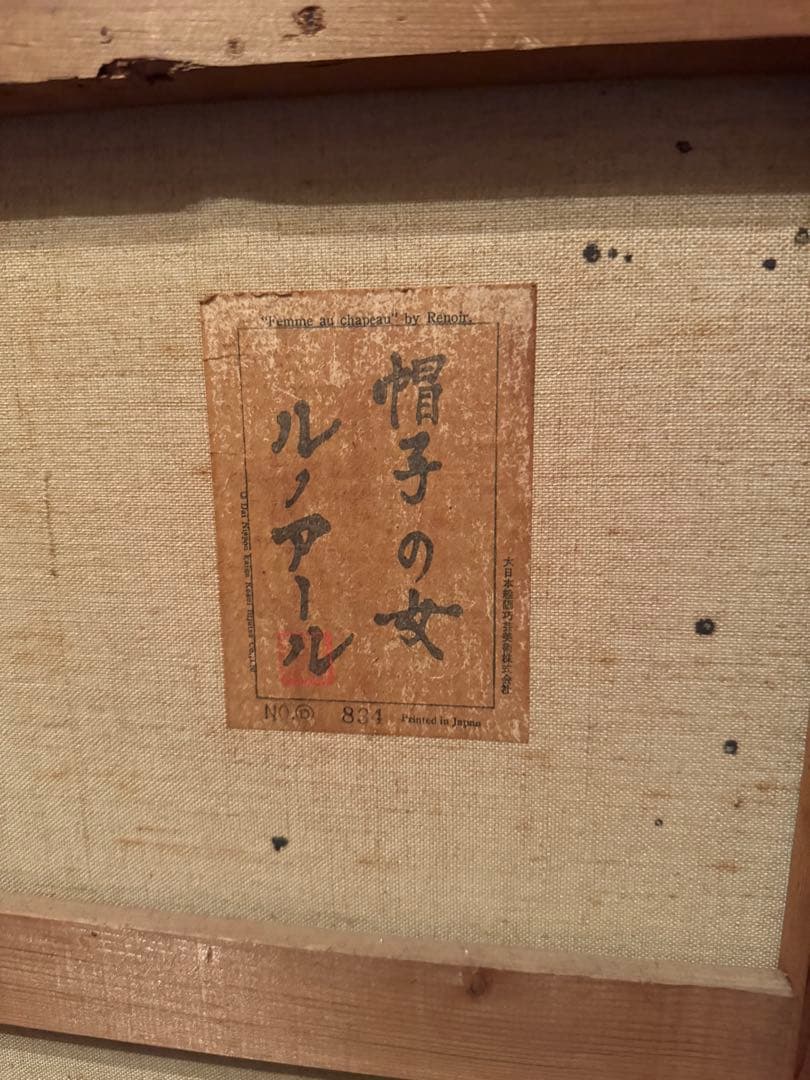 "Femme au chapeau" by Renoir.
帽子の女
ルノアール
大日本絵画巧芸美術株式会社
NO. 834
Printed in Japan